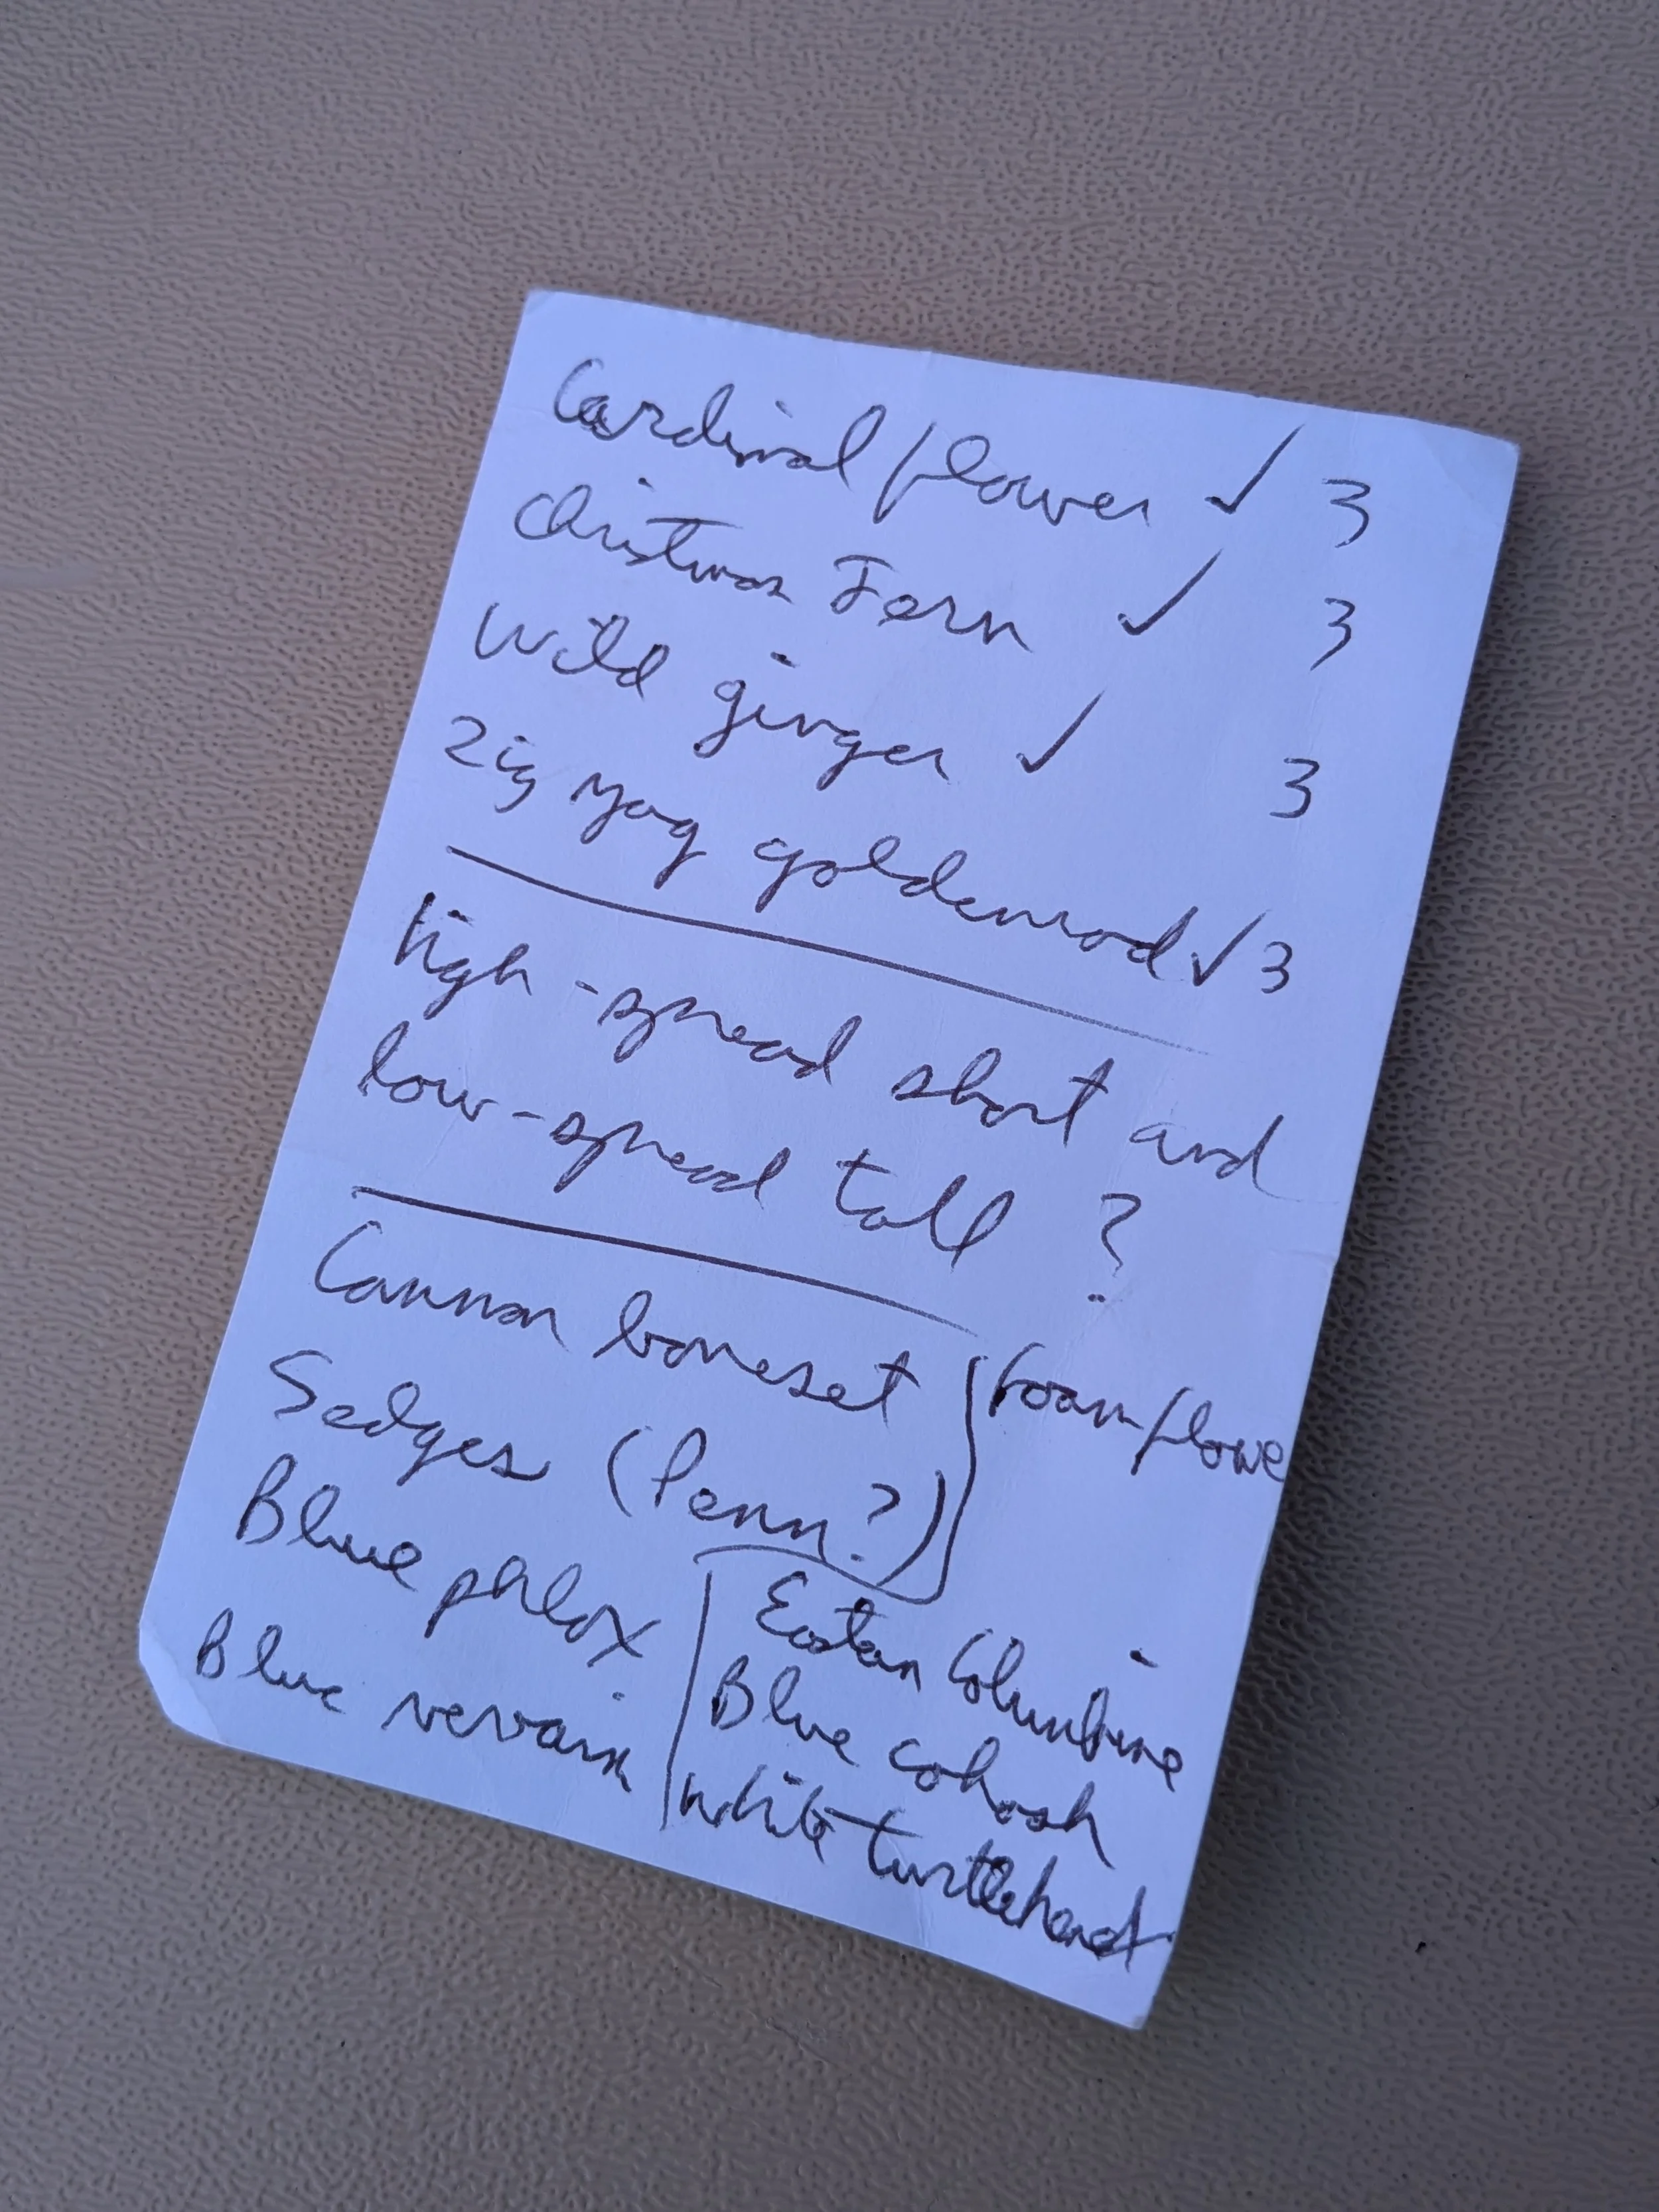 Cardinal flower ✓ 3
Christmas Fern ✓ 3
Wild ginger ✓ 3
Zig zag goldenrod ✓ 3
High-spread short and
low-spread tall ?
Common boneset
Foamflowe
Sedges (Penn?)
Blue phlox
Blue vervain
Eastern Columbine
Blue cohosh
White turtlehead